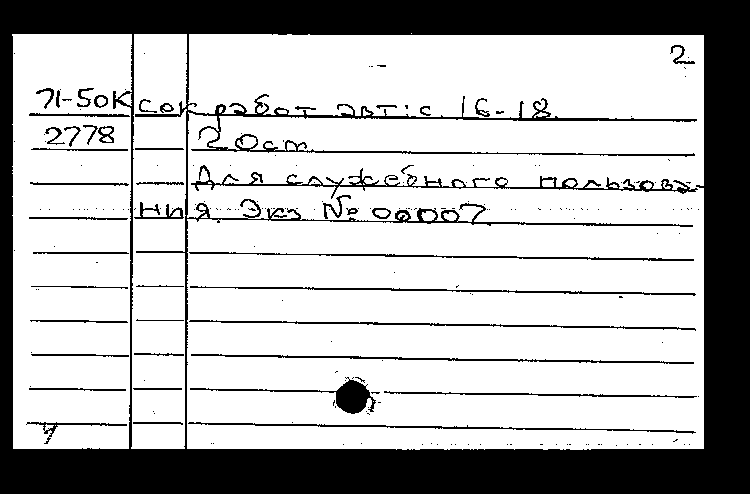 2
71-50К сок работ авт: с. 16-18.
2778 20 ст.
Для служебного пользова-
ния. Экз № 00007